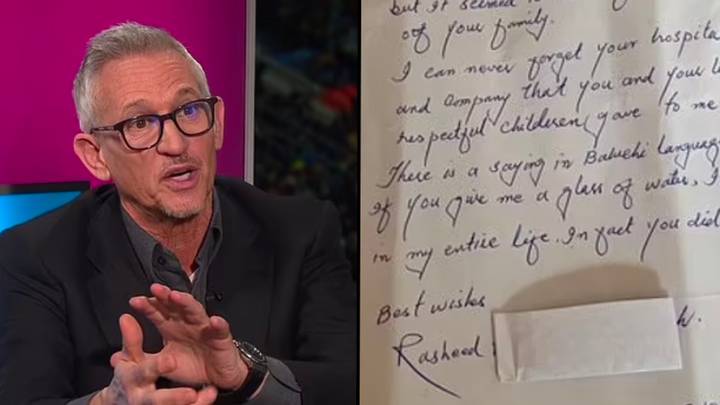 but it seemed
of your family.
I can never forget your hospita
and company that you and your
respectful children gave to me
There is a saying in Baluchi languag
If you give me a glass of water, I
in my entire life. In fact you did
Best wishes
Rasheed
h.